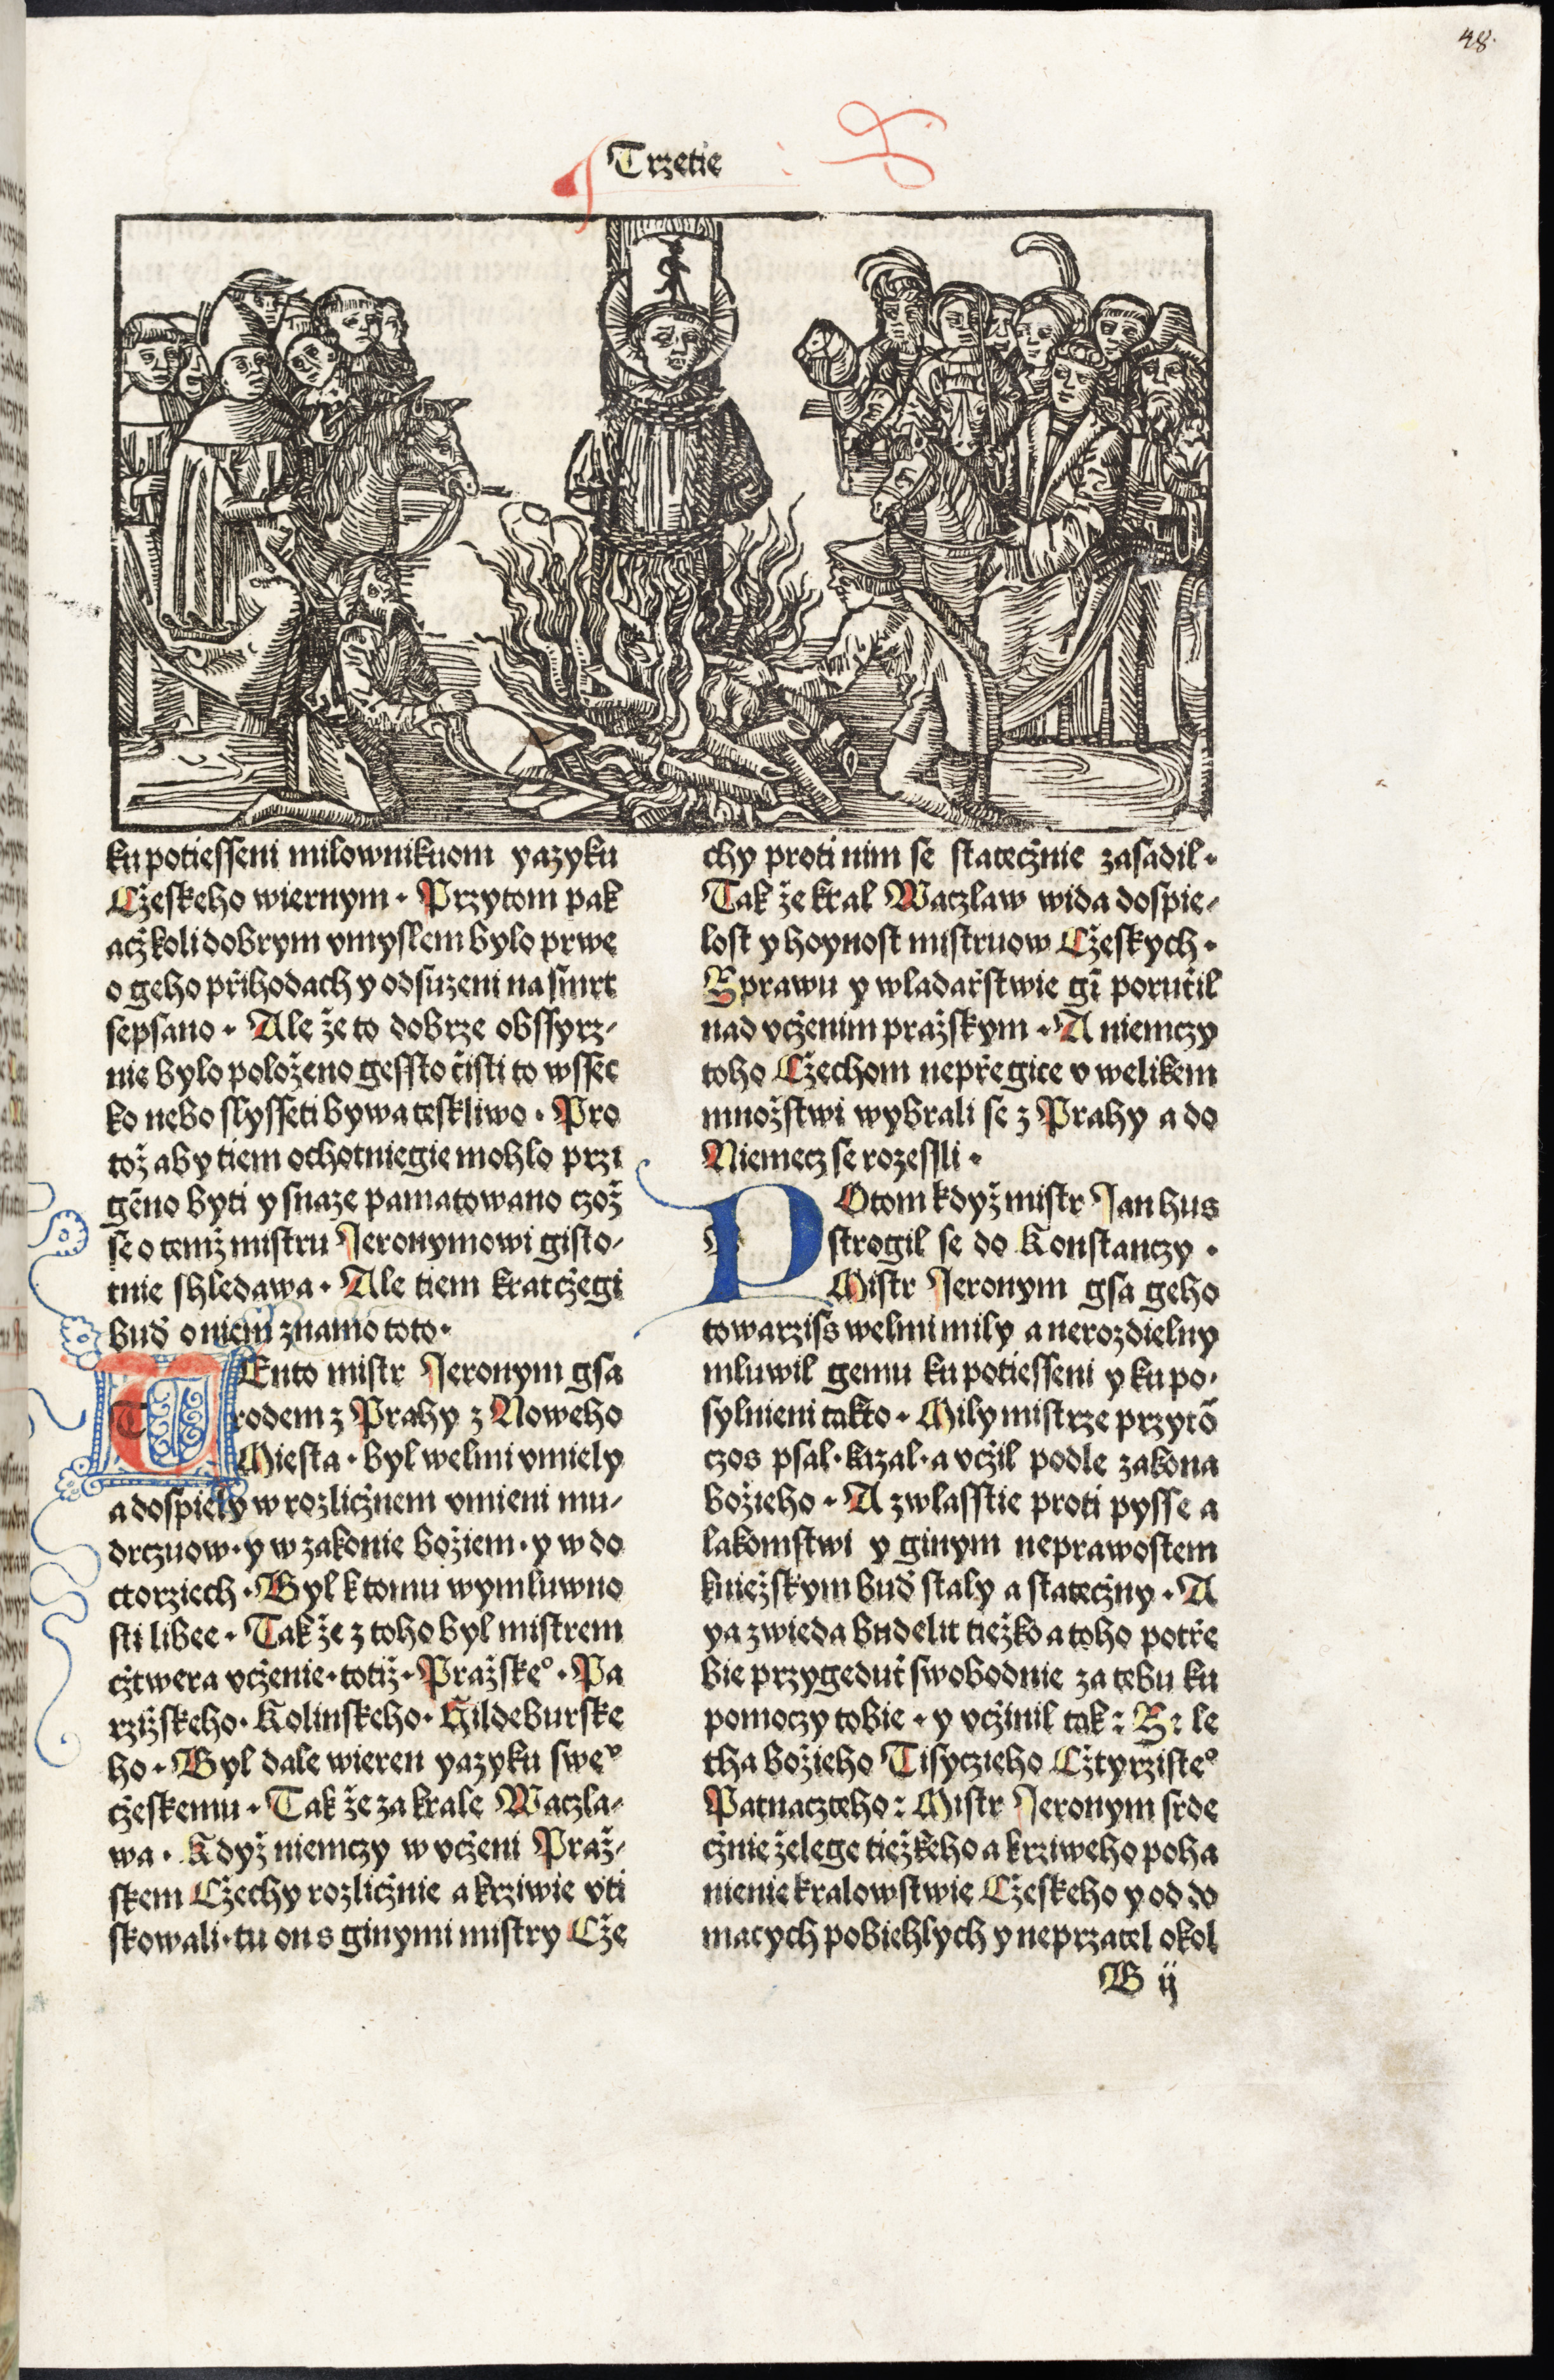 48.
Trzetie
ku potiesseni milownikuom yazyku
Cżeskeho wiernym · Przytom pak
acżkoli dobrym vmyslem bylo prwe
o geho přihodach y odsuzeni na smrt
sepsano · Ale že to dobrze obssyrz⸗
nie bylo položeno gessto čisti to wssec
ko nebo slysseti bywa teskliwo · Pro
tož aby tiem ochotniegie mohlo przi
gēno byti y snaze pamatowano czož
se o temž mistru Jeronymowi gisto⸗
tnie shledawa · Ale tiem kratcżegi
bud o niem znamo toto ·
TEnto mistr Jeronym gsa
rodem z Prahy z Noweho
Miesta · byl welmi vmiely
a dospiely w rozlicżnem vmieni mu⸗
drczuow · y w zakonie božiem · y w do
ctorziech · Byl k tomu wymluwno
sti libee · Tak že z toho byl mistrem
cżtwera vcżenie · totiž · Pražskeº · Pa
rzižskeho · Kolinskeho · Hildeburske
ho · Byl dale wieren yazyku sweº
cżeskemu · Tak že za krale Waczla⸗
wa · Když niemczy w vcżeni Praž⸗
skem Cżechy rozlicżnie a krziwie vti
skowali · tu on s ginymi mistry Cże
chy proti nim se statecżnie zasadil ·
Tak že kral Waczlaw wida dospie⸗
lost y hoynost mistruow Cżeskych ·
Sprawu y wladařstwie gī porucil
nad vcżenim pražskym · A niemczy
toho Cżechom nepřegice v welikem
množstwi wybrali se z Prahy a do
Niemecz se rozessli ·
POtom když mistr Jan hus
strogil se do Konstanczy ·
Mistr Jeronym gsa geho
towarziss welmi mily a nerozdielny
mluwil gemu ku potiesseni y ku po⸗
sylnieni takto · Mily mistrze przytō
czos psal · kazal · a vcżil podle zakona
božieho · A zwlasstie proti pysse a
lakomstwi y ginym neprawostem
kniežskym bud staly a statecżny · A
ya zwieda budelit tiežko a toho potře
bie przygedut swobodnie za tebu ku
pomoczy tobie · y vcżinil tak : le
tha božieho Tisyczieho Cżtyrzisteº
Patnaczteho : Mistr Jeronym srde
cżnie želege tiežkeho a krziweho poha
nienie kralowstwie Cżeskeho y od do
macych pobiehlych y neprzatel okol
B ij